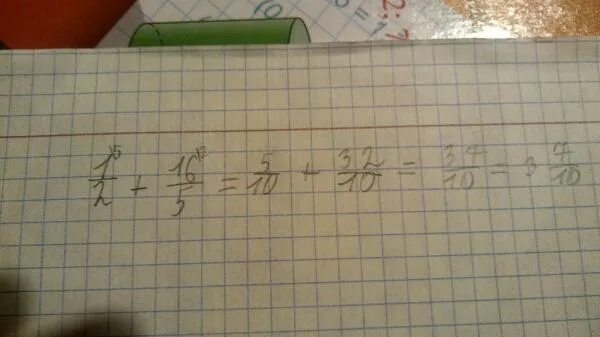 2:1
= 1
1⁵/2 + 16²/5 = 5/10 + 32/10 = 37/10 = 3 7/10